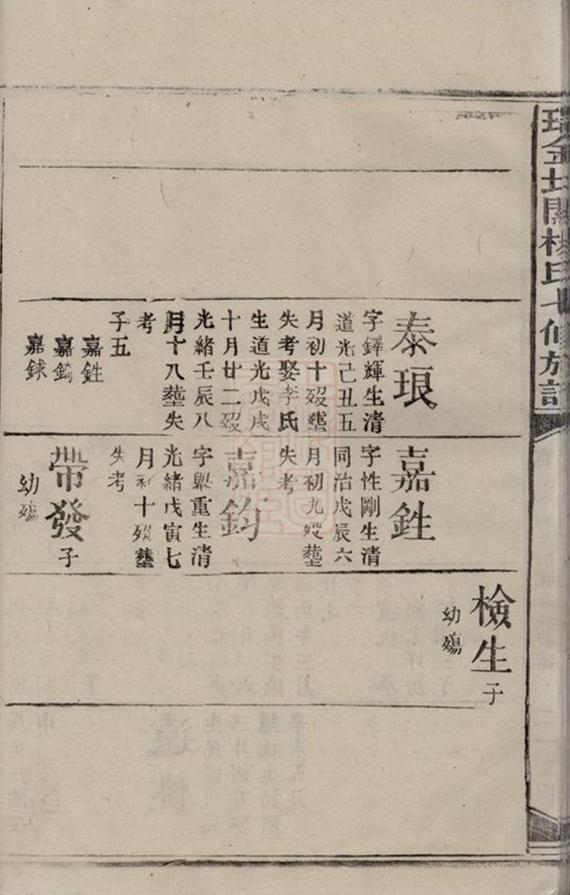 瑞金圵關楊氏七修族譜
泰琅
字鐸輝生清
道光己丑五
月初十殁塟
失考娶李氏
生道光戊戌
十月廿二殁
光緒壬辰八
月十八塟失
考
子五
嘉鉎
嘉鈞
嘉銶
嘉鉎
字性剛生清
同治戊辰六
月初九殁塟
失考
嘉鈞
字興重生清
光緒戊寅七
月初十殁塟
失考
帶發子
幼殤
檢生子
幼殤